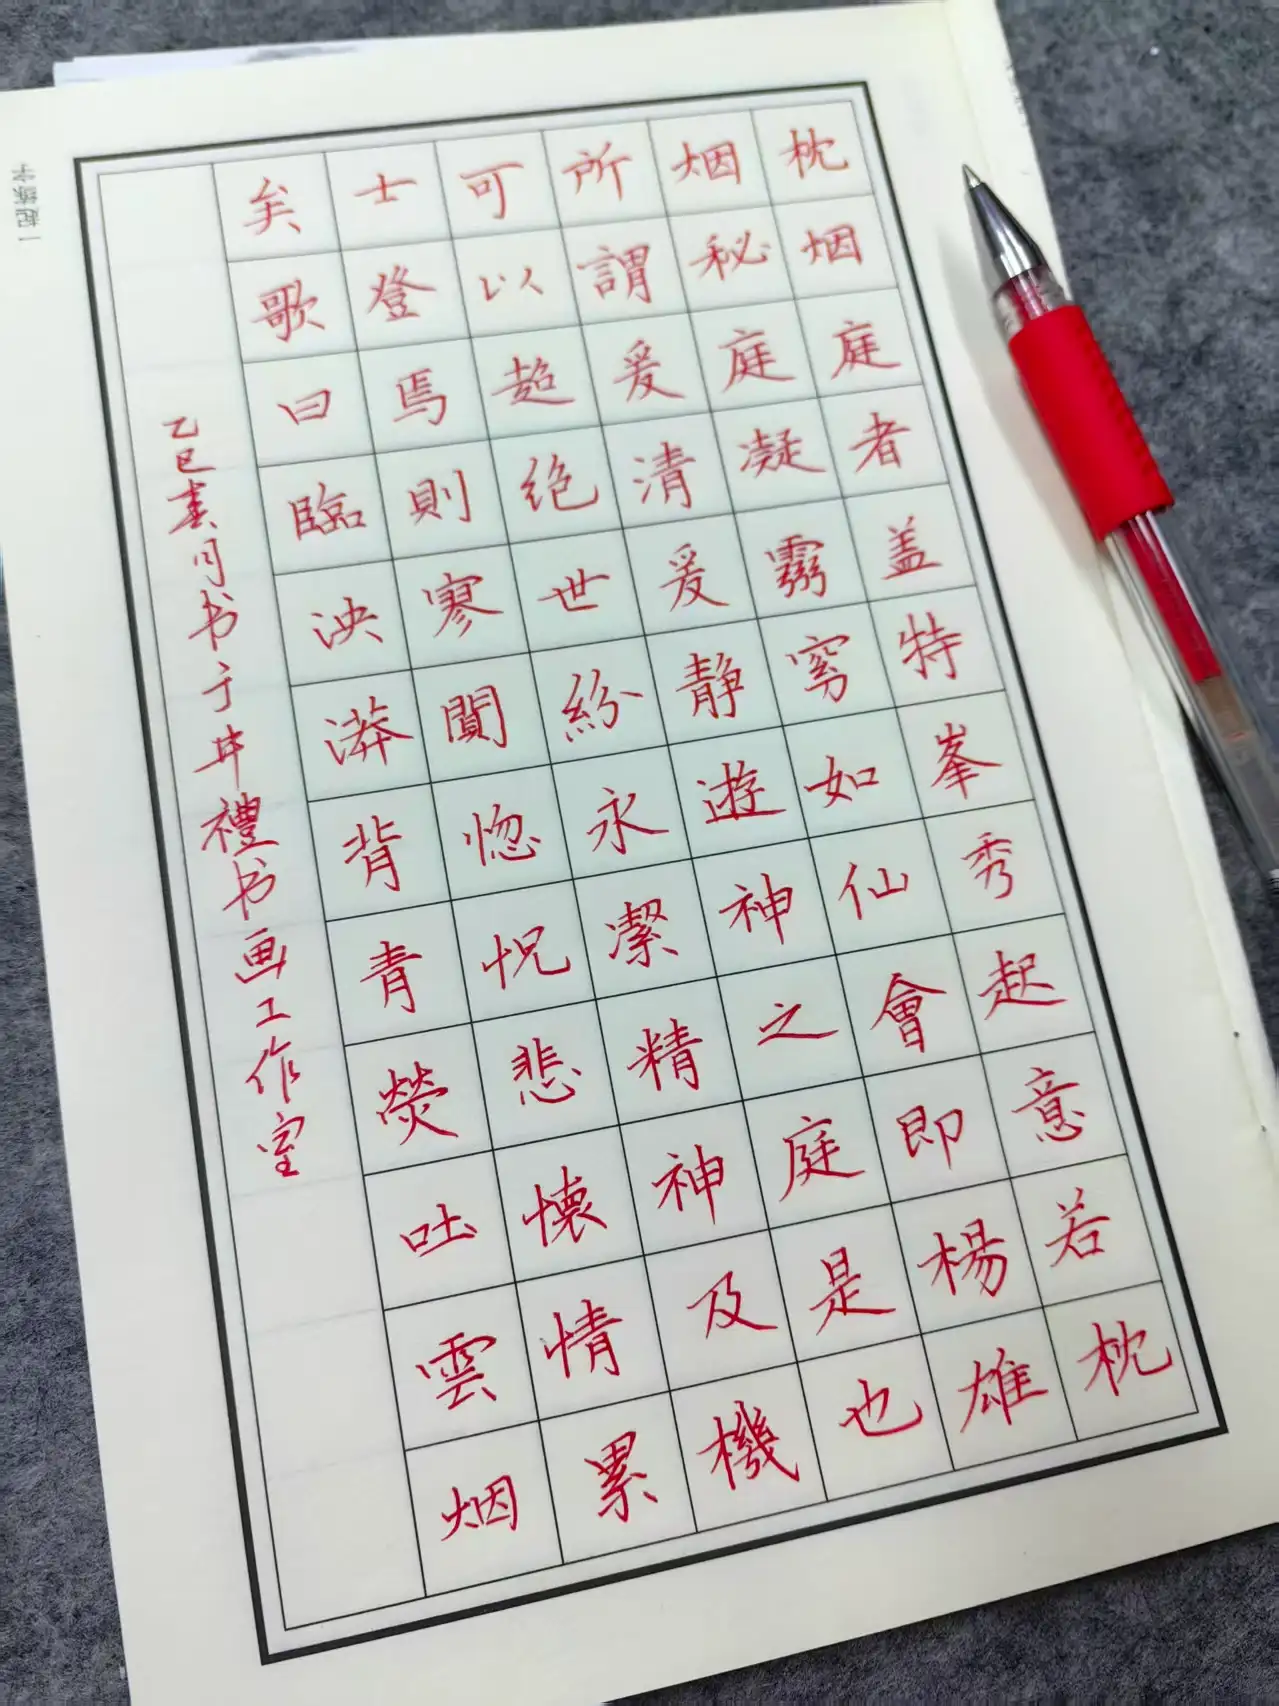 枕烟庭者盖特峯秀起意若枕
烟秘庭凝霧窮如仙會即楊雄
所謂爰清爰静遊神之庭是也
可以超绝世紛永潔精神及機
士登焉則寥闃惚怳悲懷情累
矣歌曰臨泱漭背青熒吐雲烟
乙巳书于井禮书画工作室
一起练字